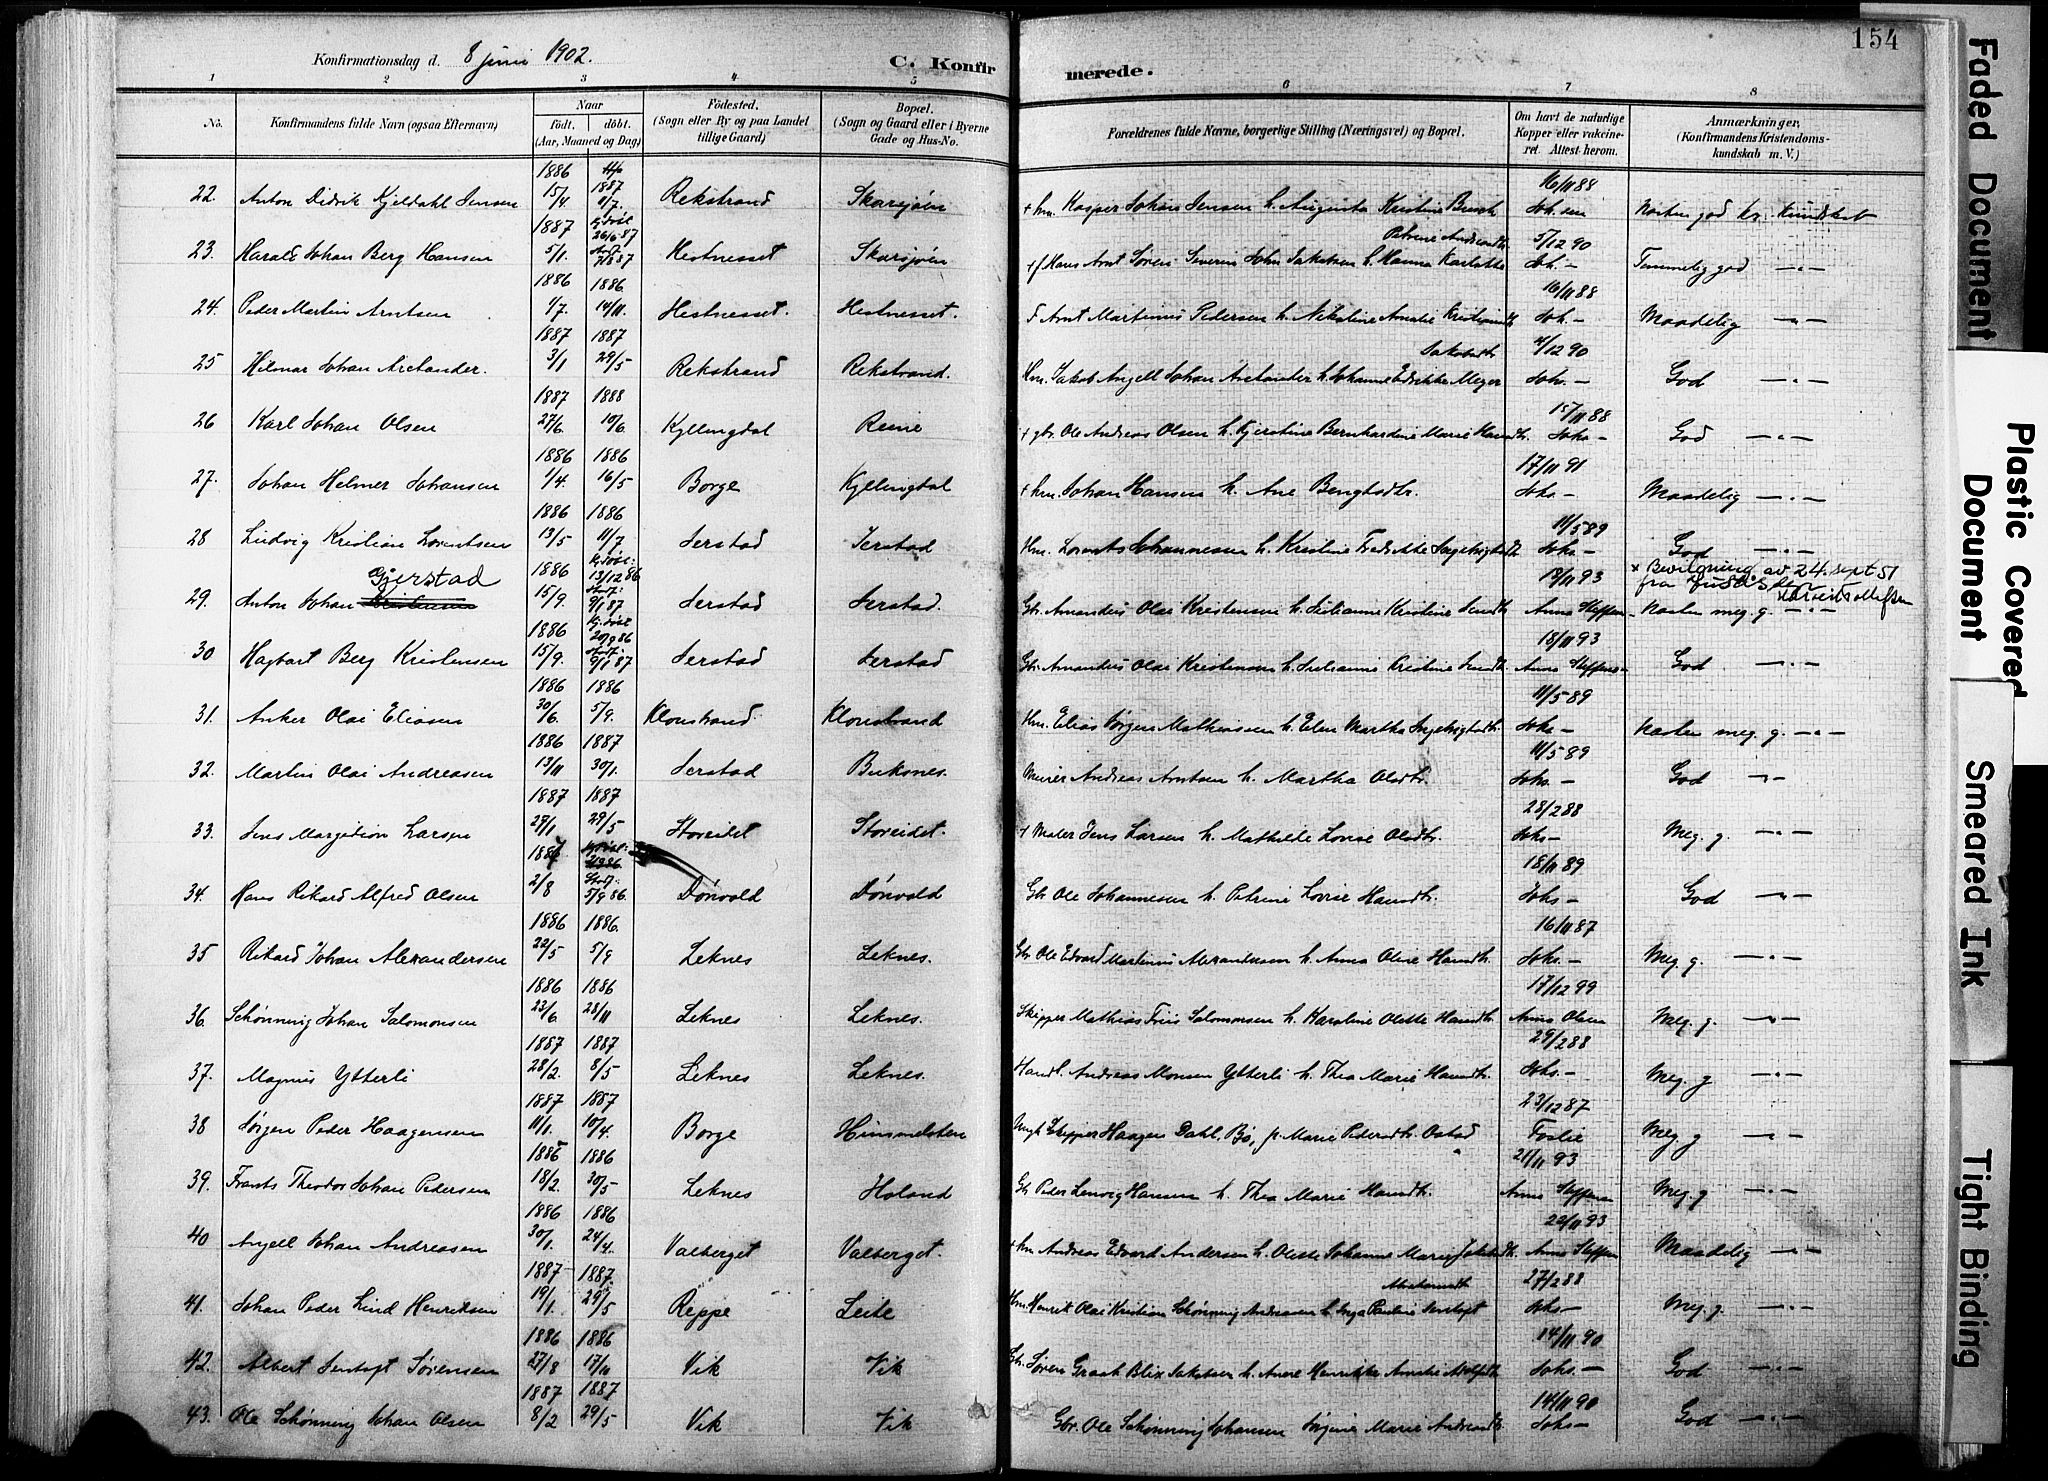 154
Konfirmationsdag d. 8 juni 1902.
C. Konfirmerede.
1 2 3 4 5 6 7 8
No.
Konfirmandens fulde Navn (ogsaa Efternavn)
Naar
Födt. döbt.
(Aar, Maaned og Dag)
Födested.
(Sogn eller By og paa Landet
tillige Gaard)
Bopæl.
(Sogn og Gaard eller i Byerne
Gade og Hus-No.
Forældrenes fulde Navne, borgerlige Stilling (Næringsvei) og Bopæl.
Om havt de naturlige
Kopper eller vakcine-
ret. Attest herom.
Anmærkninger,
(Konfirmandens Kristendoms-
kundskab m. V.)
1886 1887 16/11 88
22. Anton Didrik Kjeldahl Jensen 15/4 11/7 Rekstrand Skarsjøen + hm. Kasper Johan Jensen h. Augusta Kristine Joh.sen Næsten god kr. kundskab
1887 26/6 87 5/12 90
23. Harald Johan Berg Hansen 5/1. 87 Hestnesset Skarsjøen Hans Arnt Søren Severin John Jakobsen h. Hanna Joh. — Temmelig god — " —
1886 1886. 16/11 88
24. Peder Martin Arntsen 1/7. 14/11. Hestnesset. Hestnesset. Arnt Martinus Pedersen h. Nikoline Amalie Joh. — Maadelig — " —
1887 1887 4/12 90
25 Hilmar Johan Arctander. 3/1 29/5 Rekstrand Rekstrand. Hm. Jakob Angell Johan Arctander h. Johanne Meyer Joh. — God — " —
1887 1888 15/11 88
26 Karl Johan Olsen 27/6. 10/6. Kyllingdal Reine Ole Andreas Olsen h. Kjerstine Bernhardine Marie Hansdtr. Johs — God — " —
1886 1886 17/11 91
27. Johan Helmer Johansen 1/4. 16/5 Borge Kyllingdal + hm. Johan Hansen h. Ane Bengtsdtr. Johs — Maadelig — " —
1886 1886 11/5 89
28 Ludvig Kristian Lorentsen 13/5 11/7 Jerstad Jerstad Hm. Lorents Johannessen h. Kristine Johs — God — " —
Gjerstad 1886 13/12 86 18/11 93 × Bevilgning av 24. sept 51
29. Anton Johan Kristensen 15/9. 9/1 87 Jerstad Jerstad. Gbr. Amandus Olai Kristensen h. Julianne Kristine Anna Steffens — Næsten meg. g. — " —
1886 20/9 86 18/11 93
30 Hagbart Berg Kristensen 15/9. 9/1 87 Jerstad Jerstad Gbr. Amandus Olai Kristensen h. Julianne Kristine Anna Steffens — God — " —
1886 1886 11/5 89
31. Anker Olai Eliasen 30/6. 5/9. Klonstrand Klonstrand Hm. Elias Jørgen Mathiassen h. Elen Martha Johs — Næsten meg. g. — " —
1886 1887 11/5 89
32. Martin Olai Andreasen 13/11 30/1. Jerstad Buksnes. Murer Andreas Arntsen h. Martha Olsdtr. Johs — God — " —
1887 1887 28/2 88
33. Jens Margido Larsen 27/1 29/5 Storeidet Storeidet. + Maler Jens Larsen h. Mathilde Lovise Olsdtr. Johs — Meg. g. — " —
1887 18/11 89
34. Hans Rikard Alfred Olsen 2/8 5/9 86. Dønvold Dønvold Gbr. Ole Johannesen h. Petrine Lovise Hansdtr. Johs — God — " —
1886 1886. 16/11 87
35 Rikard Johan Alexandersen 22/5 5/9 Leknes Leknes. Gbr. Ole Edvard Martinius Alexandersen h. Anna Oline Hansdtr. Johs. — Meg. g. — " —
1886 1886 17/12 99
36. Schønning Johan Salomonsen 23/6. 28/11 Leknes Leknes. Skipper Mathias Friis Salomonsen h. Karoline Olette Hansdtr. Anna Olsen Meg. g. — " —
1887 1887 29/2 88
37. Magnus Ytterli 28/2. 8/5 Leknes Leknes. Handl. Andreas Monsen Ytterli h. Thea Marie Hansdtr. Johs. — Meg. g — " —
1887 1887 23/12 87
38 Jørgen Peder Haagensen 11/1. 10/4. Borge Himmelsten Ungk. Skipper Haagen Dahl, Bø, p. Marie Pedersdtr. Foslie Meg. g — " —
1886 1886 21/11 93
39. Frants Theodor Johan Pedersen 18/2. 30/5 Leknes Holand Gbr. Peder Hansen h. Thea Marie Hansdtr. Anna Steffensen Meg. g — " —
1886 1886 22/11 93
40 Angell Johan Andreasen 30/1. 24/4. Valberget Valberget. + hm. Andreas Edvard Andersen h. Olette Johanne Marie Anna Steffensen Maadelig — " —
1887 1887. 27/2 88
41. Johan Peder Lind Henriksen 19/1. 29/5 Reppe Leite Hm. Henrik Olai Kristian Schønning Andreasen h. Inga Pauline Jentoft Johs — Meg. g. — " —
1886 1886 14/11 90
42. Albert Jentoft Sørensen 27/8 17/10 Vik Vik Gbr. Søren Graah Blix Jakobsen h. Anne Henrikke Amalie Johs. — God — " —
1887 1887 14/11 90
43. Ole Schønning Johan Olsen 8/2 29/5 Vik Vik Gbr. Ole Schønning Johansen Jørgine Marie Johs — God — " —
Faded Document
Plastic Covered
Document
Smeared Ink
Tight Binding